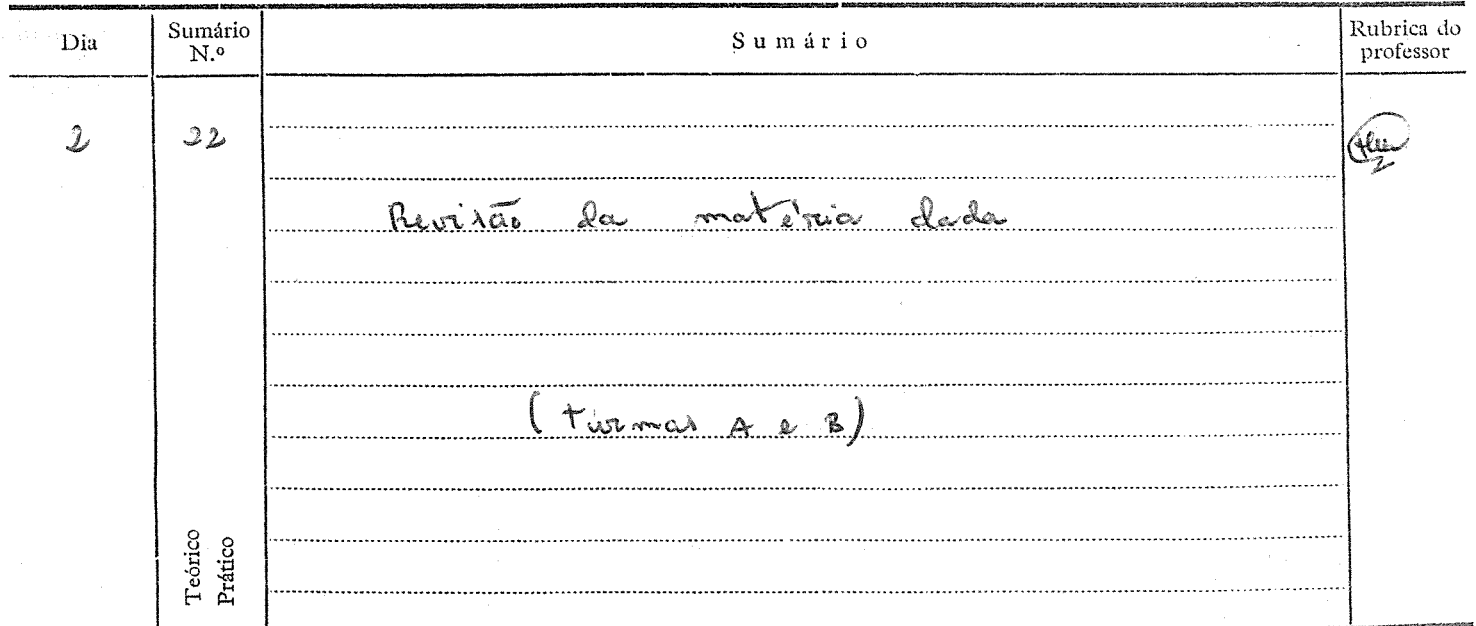 Dia
Sumário N.º
Sumário
Rubrica do professor
2
22
Revisão da matéria dada
(turmas A e B)
Teórico
Prático